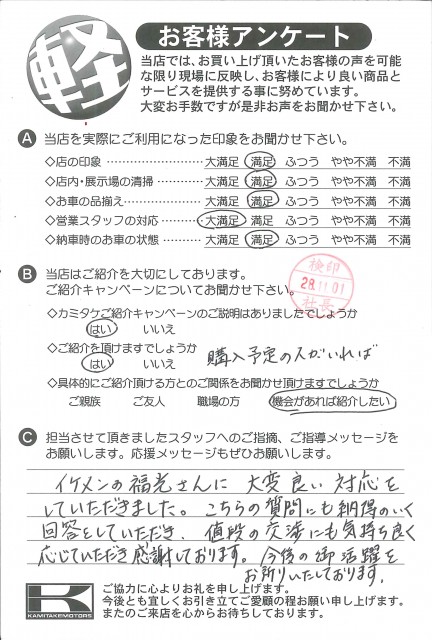 軽
お客様アンケート
当店では、お買い上げ頂いたお客様の声を可能
な限り現場に反映し、お客様により良い商品と
サービスを提供する事に努めています。
大変お手数ですが是非お声をお聞かせ下さい。
A 当店を実際にご利用になった印象をお聞かせ下さい。
◇店の印象 ………………… 大満足 満足 ふつう やや不満 不満
◇店内・展示場の清掃 ………… 大満足 満足 ふつう やや不満 不満
◇お車の品揃え ……………… 大満足 満足 ふつう やや不満 不満
◇営業スタッフの対応 ………… 大満足 満足 ふつう やや不満 不満
◇納車時のお車の状態 ………… 大満足 満足 ふつう やや不満 不満
B 当店はご紹介を大切にしてあります。
ご紹介キャンペーンについてお聞かせ下さい。
検印
28.11.01
社長
◇カミタケご紹介キャンペーンのご説明はありましたでしょうか
はい いいえ
◇ご紹介を頂けますでしょうか
はい いいえ
購入予定の人がいれば
◇具体的にご紹介頂ける方とのご関係をお聞かせ頂けますでしょうか
ご親族 ご友人 職場の方 機会があれば紹介したい
C 担当させて頂きましたスタッフへのご指摘、ご指導メッセージを
お願いします。応援メッセージもぜひお願いします。
イケメンの福光さんに 大変良い対応を
していただきました。こちらの質問にも納得のいく
回答をしていただき、値段の交渉にも気持ち良く
応じていただき感謝しております。今後の御活躍を
お祈りいたしております。
K
KAMITAKEMOTORS
ご協力に心よりお礼を申し上げます。
今後とも宜しくお引き立てご愛顧の程お願い申し上げます。
またのご来店を心からお待ちしております。